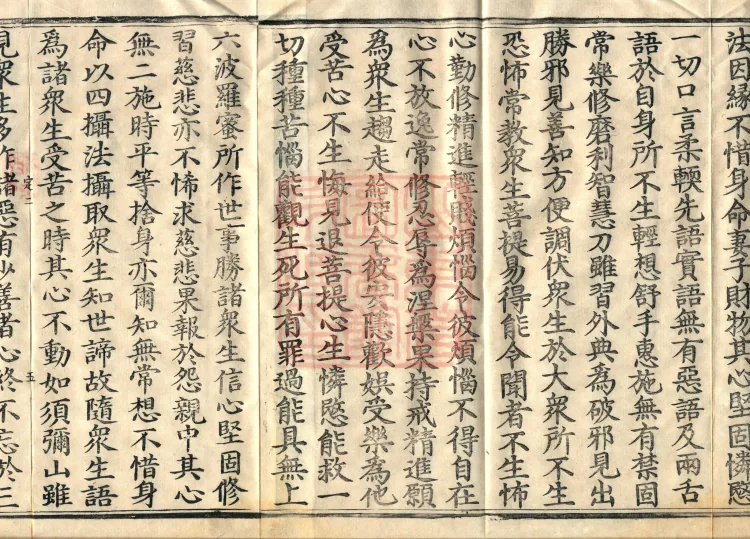 法因縁不惜身命妻子財物其心堅固憐愍
一切口言柔輭先語實語無有惡語及兩舌
語於自身所不生輕想舒手惠施無有禁固
常樂修磨利智慧刀雖習外典為破邪見出
勝邪見善知方便調伏衆生於大衆所不生
恐怖常教衆生菩提易得能令聞者不生怖
心勤修精進輕賤煩惱令彼煩惱不得自在
心不放逸常修忍辱為涅槃果持戒精進願
為衆生趨走給使令彼安隱歡娛受樂為他
受苦心不生悔見退菩提心生憐愍能救一
切種種苦惱能觀生死所有罪過能具無上
六波羅蜜所作世事勝諸衆生信心堅固修
習慈悲亦不悕求慈悲果報於怨親中其心
無二施時平等捨身亦爾知無常想不惜身
命以四攝法攝取衆生知世諦故隨衆生語
為諸衆生受苦之時其心不動如須彌山雖
定二 五
見衆生多作諸惡有少善者心終不忘於三